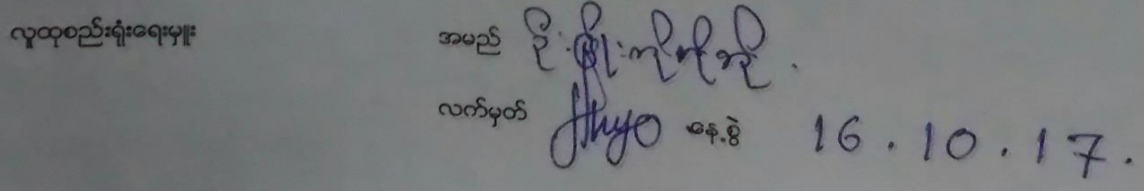 လူထုစည်းရုံးရေးမှူး အမည် ဦးဖြိုးကိုကိုကို
လက်မှတ် နေ့စွဲ 16.10.17.